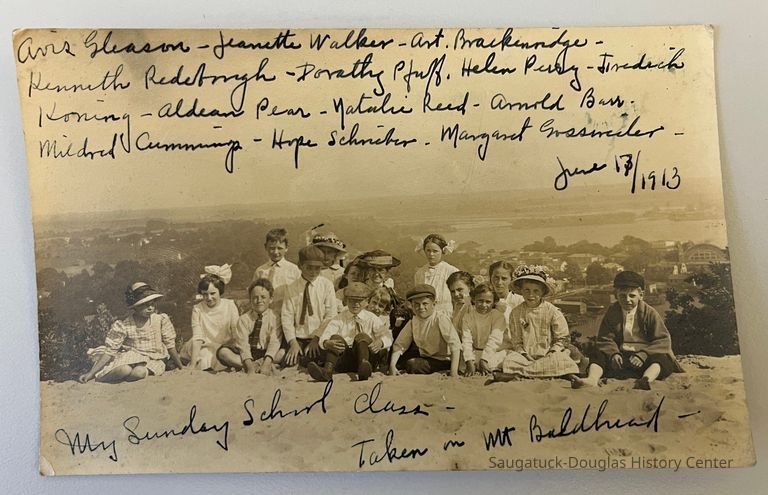 Avis Gleason - Jeanette Walker - Art. Brackenridge -
Kenneth Redebough - Dorathy Pfaff. Helen Perry - Fredrick
Koning - Aldean Pear - Natalie Reed - Arnold Barr.
Mildred Cummings - Hope Schreiber. Margaret Grosswieler -
June 17/1913
My Sunday School Class -
Taken on Mt Baldhead -
Saugatuck-Douglas History Center